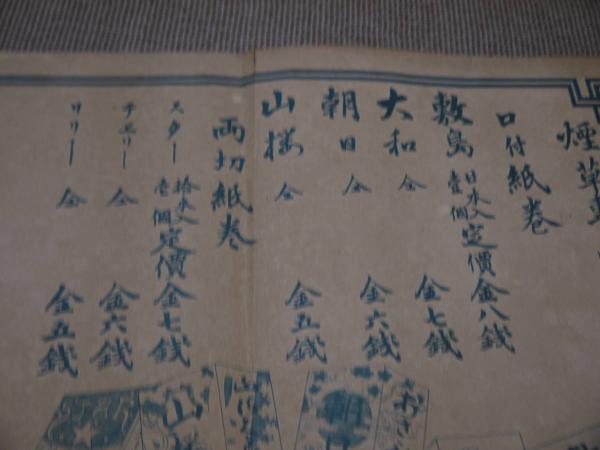 煙草
口付紙巻
敷島 壹個定價金八錢
大和 仝 金七錢
朝日 仝 金六錢
山櫻 仝 金五錢
両切紙巻
スター 拾本入壹個定價金七錢
チエリー 仝 金六錢
リリー 仝 金五錢
山櫻
朝日